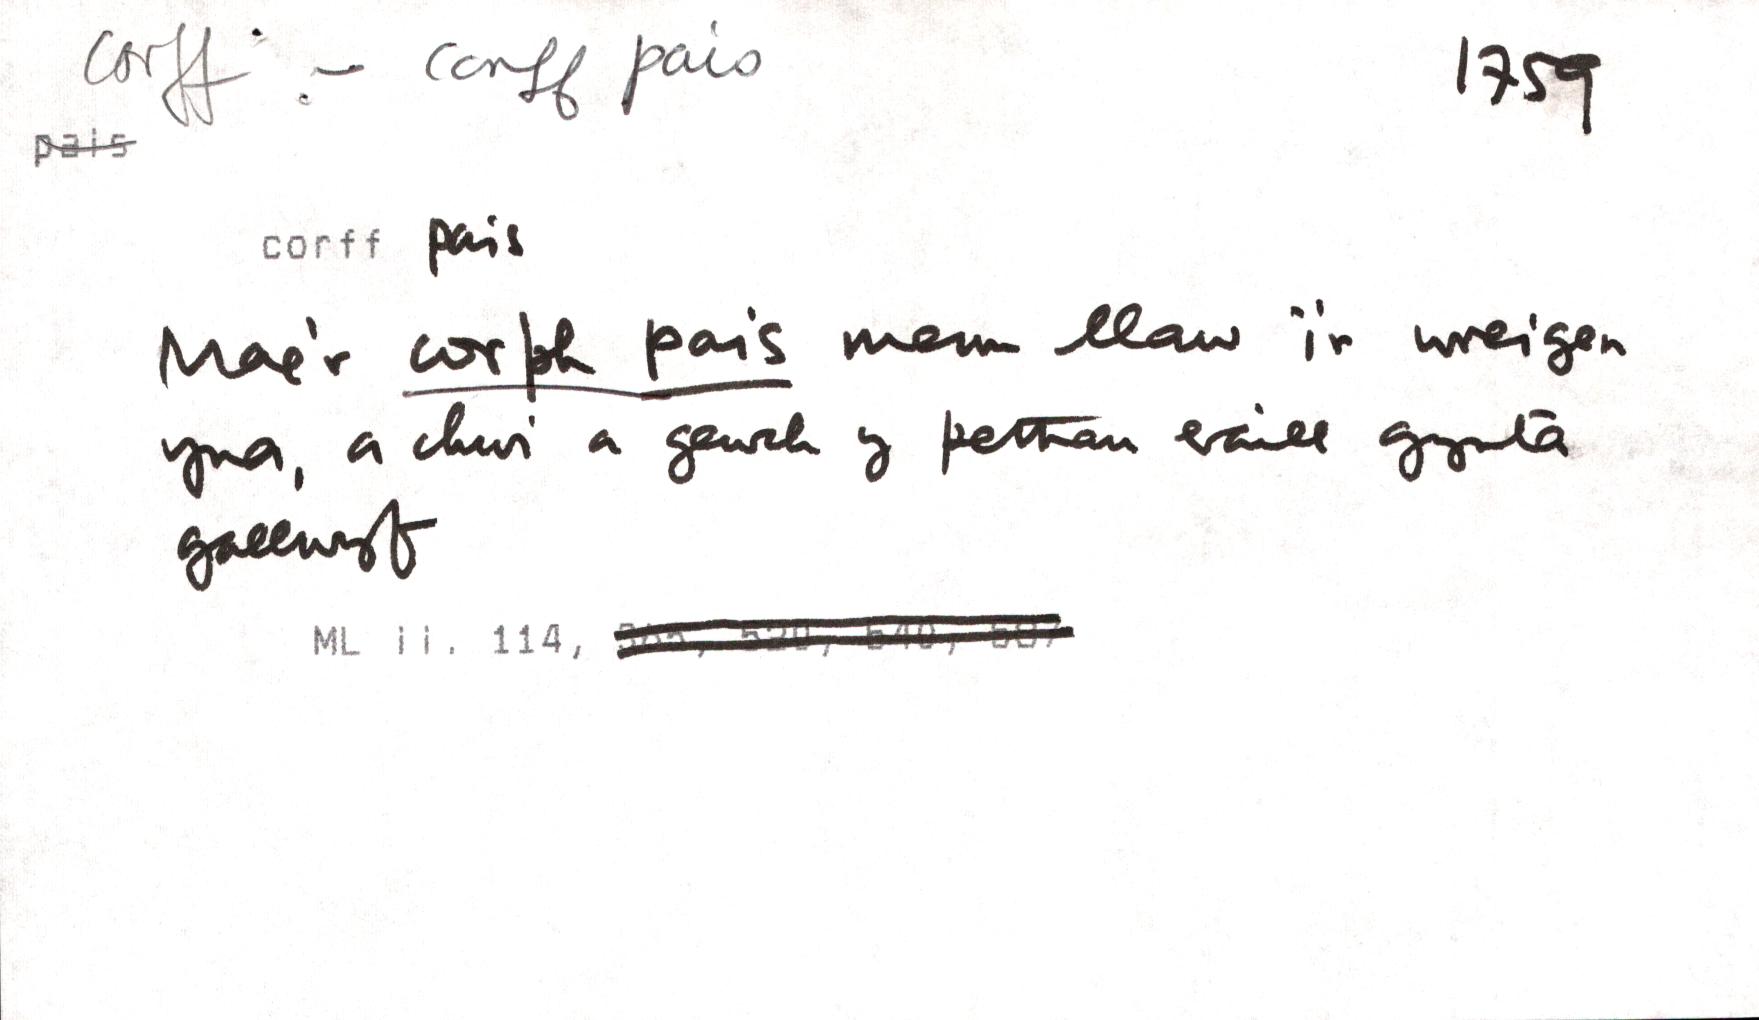 corff : – corff pais 1759
pais
corff pais
Mae'r corph pais mewn llaw i'r wreigen
yna, a chwi a gewch y pethau eraill gynta
gallwyf
ML ii. 114,